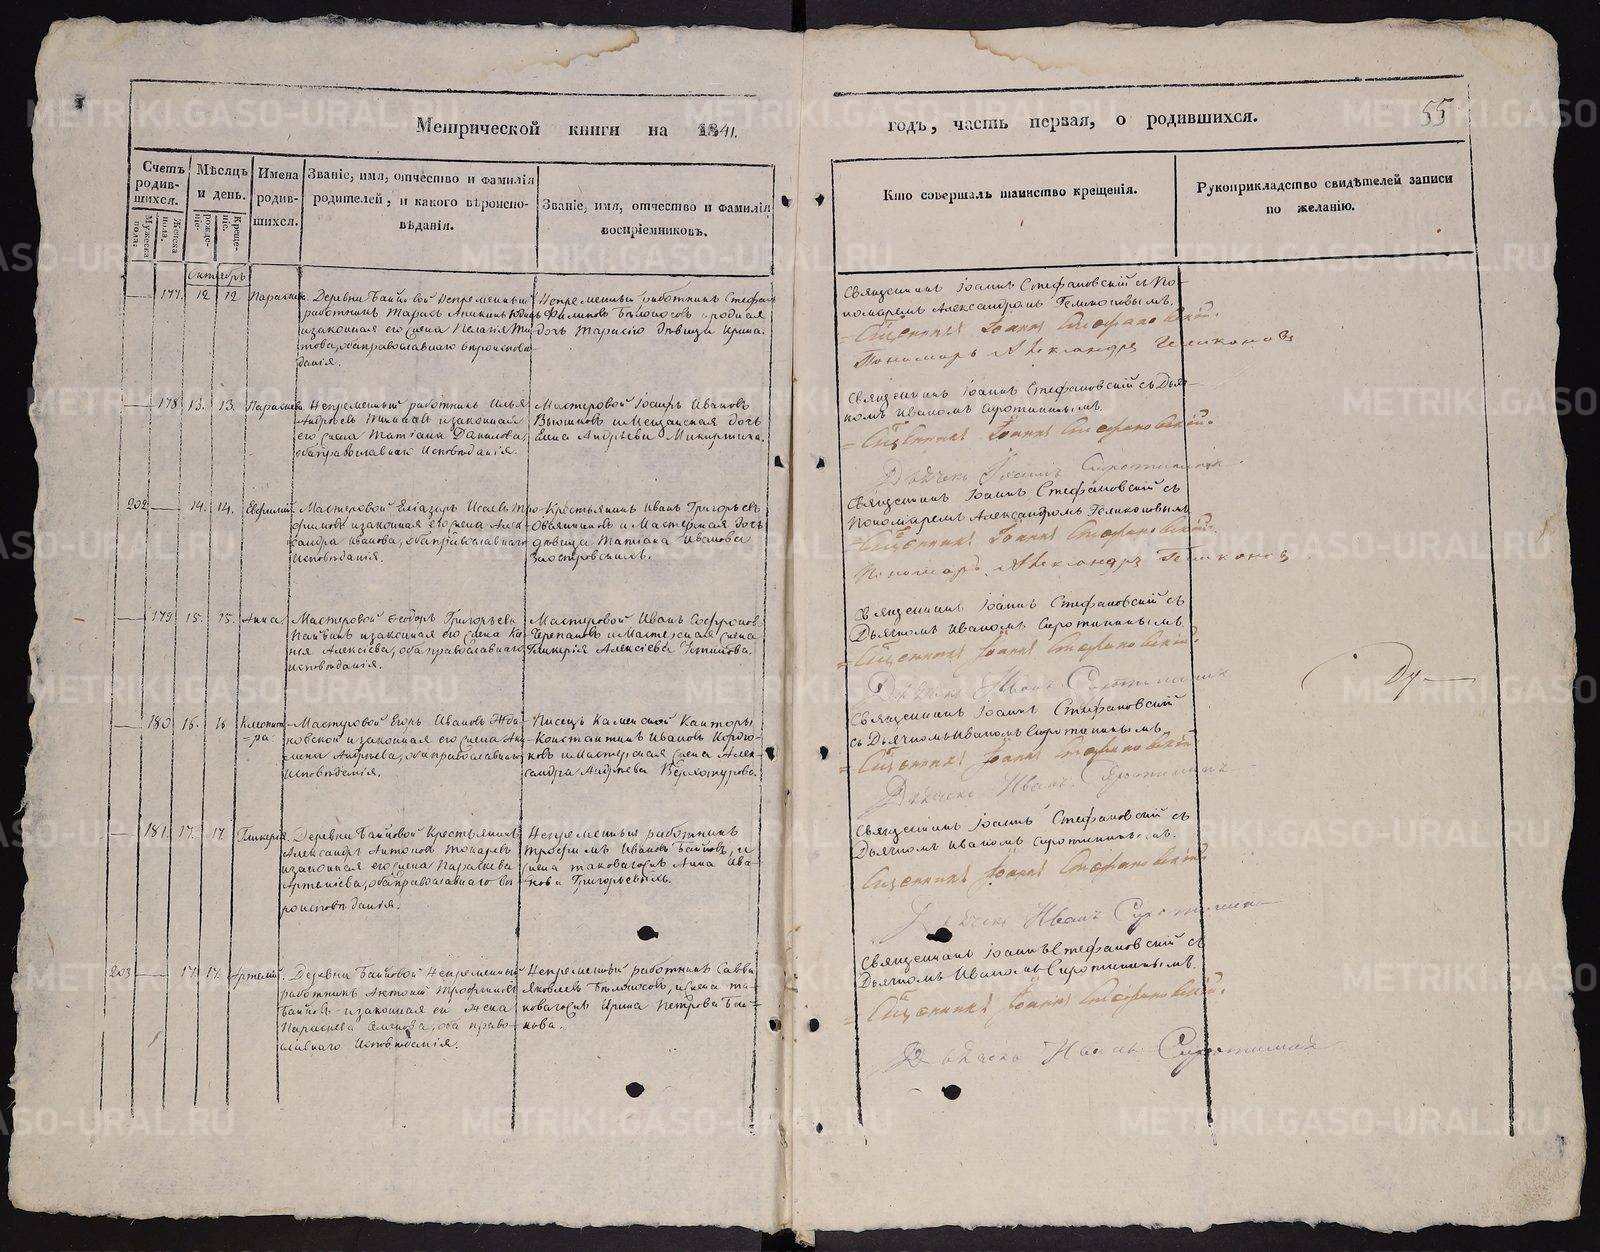 Метрической книги на 1841.
годъ, часть первая, о родившихся.
55
Счетъ родив-
шихся.
Мужеска пола.
Женска пола.
Мѣсяцъ
и день.
рожде-
нія.
Креще-
нія.
Имена
родив-
шихся.
Званіе, имя, отчество и фамилія
родителей, и какого вѣроиспо-
вѣданія.
Званіе, имя, отчество и фамилія
воспріемниковъ.
Кто совершалъ таинство крещенія.
Рукоприкладство свидѣтелей записи
по желанію.
Октябрь
177. 12 12
Деревни Байновой Непременный
работникъ Тарасъ
и законная его жена Пелагія Ти-
това, оба православнаго вѣроисповѣ-
данія.
Непременный работникъ Стефанъ
Филиповъ Бѣлоносовъ и родная
дочь Тарасію дѣвица Ирина.
Священникъ Іоаннъ Стефановскій съ По-
номаремъ Александромъ Геликоновымъ.
Священникъ Іоаннъ Стефановскій.
Пономарь Александръ Геликоновъ
178 13. 13. Параскева
Непременный работникъ Илья
Андреевъ и законная
его жена Татіана Данилова,
оба православнаго Исповѣданія.
Мастеровой Іосифъ Ивановъ
Вьюшковъ и Мещанская дочь
Елена Андреева Микиртина.
Священникъ Іоаннъ Стефановскій съ Дьяч-
комъ Иваномъ Сиротининымъ.
Священникъ Іоаннъ Стефановскій.
Дьячекъ Иванъ Сиротининъ
202 14. 14. Евфимій
Мастеровой Еліазаръ Исаевъ Тро-
фимовъ и законная его жена Алек-
сандра Иванова, оба православнаго
Исповѣданія.
Крестьянинъ Иванъ Григорьевъ
Овсянниковъ и Мастерская дочь
дѣвица Татіана Иванова
Заостровскихъ.
Священникъ Іоаннъ Стефановскій съ
Пономаремъ Александромъ Геликоновымъ
Священникъ Іоаннъ Стефановскій.
Пономарь Александръ Геликоновъ
179 15. 15. Анна
Мастеровой Ѳеодоръ Григорьевъ
и законная его жена Ксе-
нія Алексіева, оба православнаго
исповѣданія.
Мастеровой Иванъ Софроновъ
Черепановъ и Мастерская жена
Гликерія Алексіева Устинова.
Священникъ Іоаннъ Стефановскій съ
Дьячкомъ Иваномъ Сиротининымъ
Священникъ Іоаннъ Стефановскій.
Дьячекъ Иванъ Сиротининъ
180 16. 16 Клеопат-
ра.
Мастеровой Егоръ Ивановъ Жда-
новской и законная его жена Аку-
лина Андреева, оба православнаго
Исповѣданія.
Писецъ Каменской Канторы
Константинъ Ивановъ
и Мастерская жена Алек-
сандра Андреева Верхотурова.
Священникъ Іоаннъ Стефановскій
съ Дьячкомъ Иваномъ Сиротининымъ
Священникъ Іоаннъ Стефановскій
Дьячекъ Иванъ Сиротининъ
181. 17. 17. Гликерія
Деревни Байновой Крестьянинъ
Александръ Антоновъ Токаревъ
и законная его жена Параскева
Артеміева, оба православнаго вѣ-
роисповѣданія.
Непременный работникъ
Трофимъ Ивановъ Байновъ, и
жена таковагожъ Анна Ива-
нова Григорьевыхъ.
Священникъ Іоаннъ Стефановскій съ
Дьячкомъ Иваномъ Сиротининымъ.
Священникъ Іоаннъ Стефановскій
Дьячекъ Иванъ Сиротининъ
203 17. 17. Артемій
Деревни Байновой Непременный
работникъ Антоній Трофимовъ
Байновъ и законная его жена
Параскева Семенова, оба право-
славнаго Исповѣданія.
Непременной работникъ Савва
Яковлевъ Бѣлоносовъ, и жена та-
ковагожъ Ирина Петрова Бай-
нова.
Священникъ Іоаннъ Стефановскій съ
Дьячкомъ Иваномъ Сиротининымъ.
Священникъ Іоаннъ Стефановскій.
Дьячекъ Иванъ Сиротининъ
METRIKI.GASO-URAL.RU